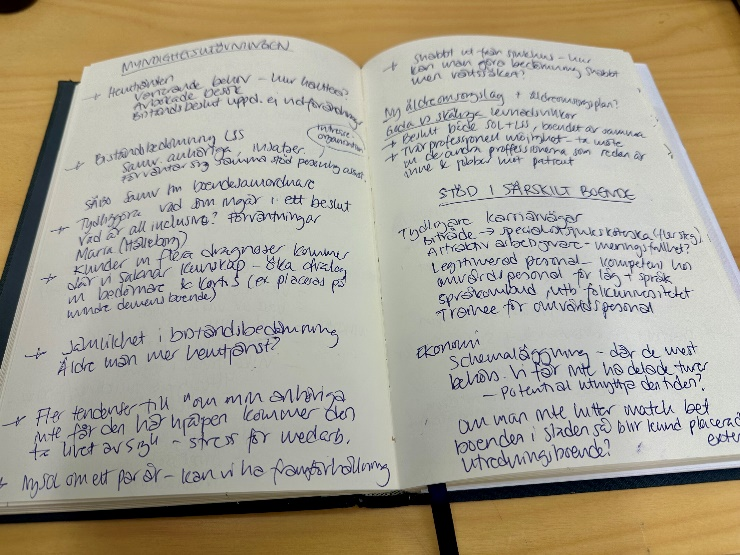 MYNDIGHETSUTÖVNINGEN
+ Hemtjänsten
Varierande behov – hur hantera?
Avbokade besök
Biståndsbeslut uppd. ej vid förändring
intresse-
organisation
+ Biståndsbedömning LSS
samv. anhöriga, insatser
förväntar sig samma stöd personlig assist
SÄBO samv m boendesamordnare
+ Tydliggöra vad som ingår i ett beslut
vad är all inclusive? Förväntningar
Maria (Hälleborg)
+ Kunder m flera diagnoser kommer
där vi saknar kunskap – öka dialog
m bedömare & kortis (ex placeras på
mindre demensboende)
+ Jämlikhet i biståndsbedömning
Äldre män mer hemtjänst?
+ Fler tendenser till "om min anhöriga
inte får den här hjälpen kommer den
ta livet av sig" – stress för medarb.
+ Ny sol om ett par år – kan vi ha framförhållning
+ Snabbt ut från sjukhus – hur
kan man göra bedömning snabbt
men rättssäkert?
Ny äldreomsorgslag + äldreomsorgsplan?
Goda vs skäliga levnadsvillkor
+ Beslut både SOL + LSS, boendet är samma
+ Tvärprofessionell möjlighet – ta möte
m de andra professionerna som redan är
inne & jobbar mot patient
STÖD I SÄRSKILT BOENDE
Tydligare karriärvägar
Biträde → specialistsjuksköterska (fler steg)
Attraktiv arbetsgivare – meningsfullhet?
Legitimerad personal – kompetens hos
omvårdspersonal för låg + språk
Språkombud, utb folkuniversitetet
Trainee för omvårdspersonal
Ekonomi
Schemaläggning – där de mest
behövs. Vi får inte ha delade turer
– Potential utnyttja den tiden?
Om man inte hittar match bet
boenden i staden så blir kund placerad
externt
utredningsboende?